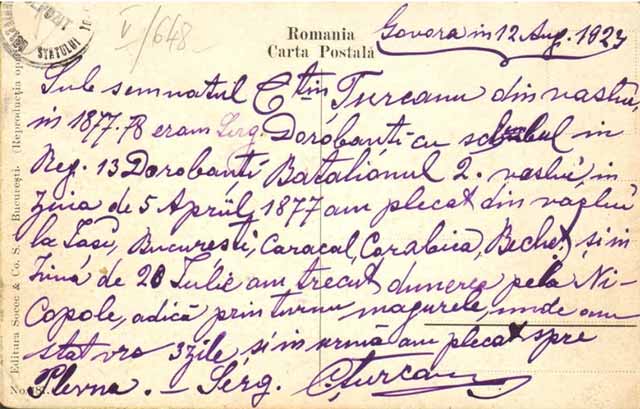 V/648
Romania
Carta Postală
Govora in 12 Aug. 1927
Sub semnatul Ctin Turcanu din vaslui,
in 1877-78 eram Serg. Dorobanți cu schimbul in
Reg. 13 Dorobanți Batalionul 2. vaslui, in
ziua de 5 Aprilie 1877 am plecat din vaslui
la Iasi, București, Caracal, Corabiea, Bechet și in
ziua de 20 Iulie am trecut dunerea pela Ni-
copole, adică prin turnu magurele, unde am
stat vro 3 zile, si in urmă am plecat spre
Plevna. - Serg. CȚurcanu
Editura Socec & Co. S. A. București. (Reproducția oprită
STATULUI